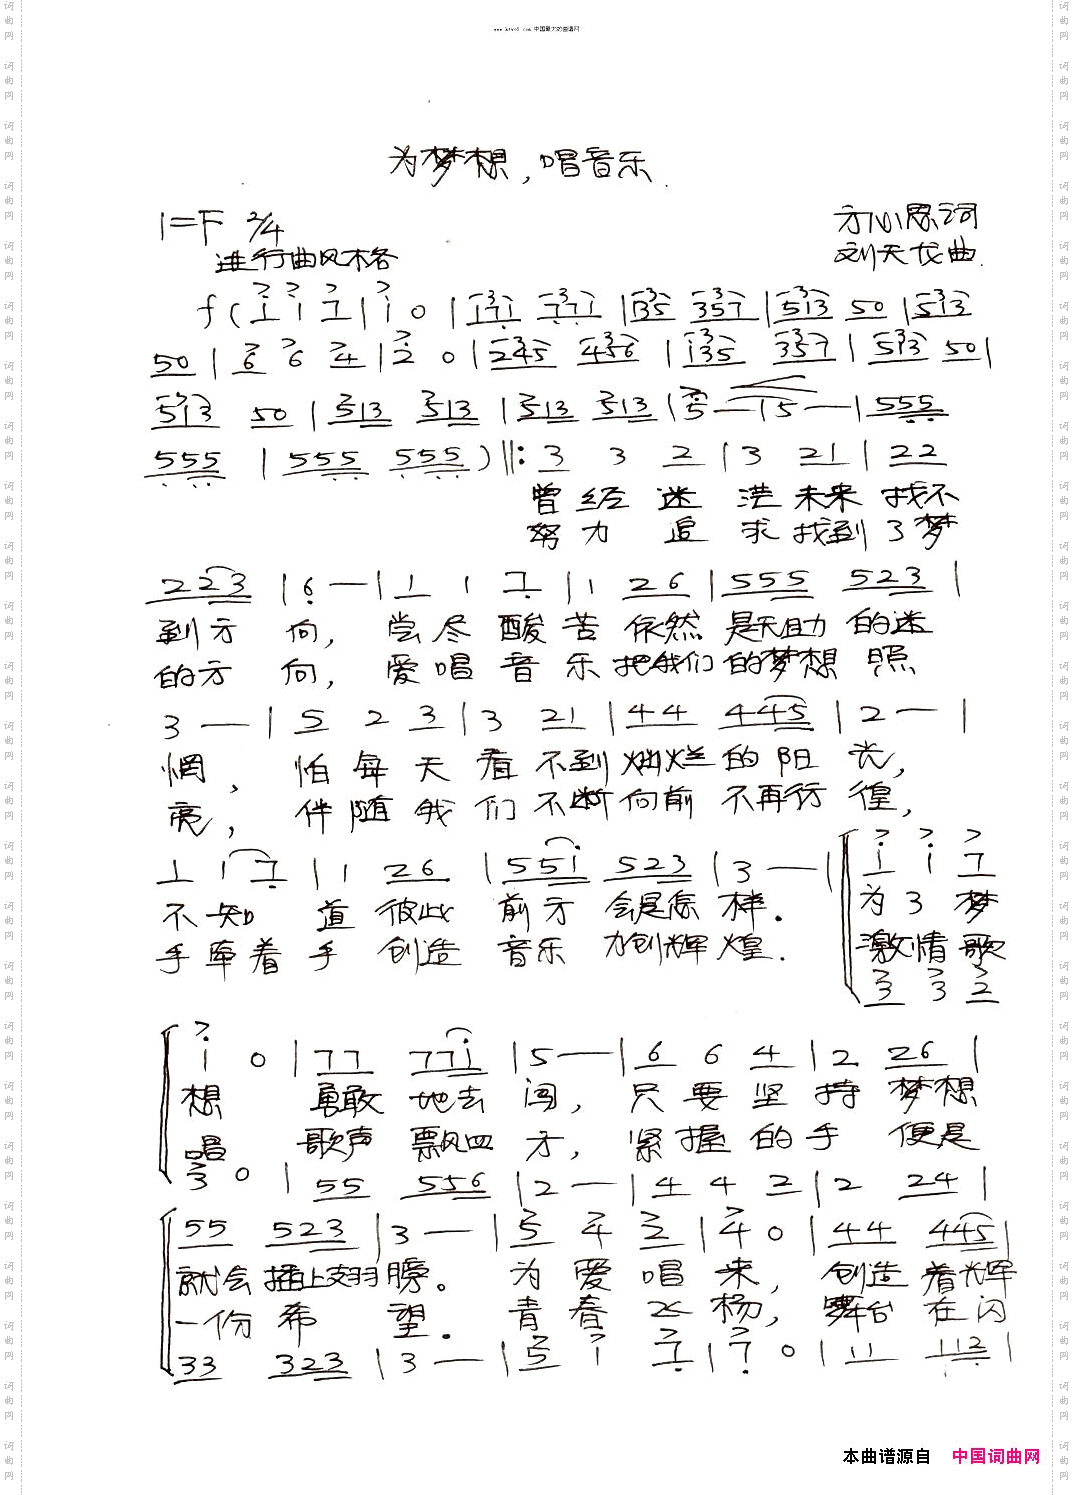 www.ktvc8.com 中国最大的曲谱网
为梦想,唱音乐
1=F 2/4
方心愿词
进行曲风格
刘天龙曲
f( i i 7 | i 0 | i71 771 | 135 357 | 513 50 | 513
50 | 6 6 4 | 2 0 | 245 456 | 135 357 | 513 50 |
513 50 | 513 513 | 513 513 | 5 — | 5 — | 555
555 | 555 555 ) ||: 3 3 2 | 3 21 | 22
曾经迷茫未来找不
努力追求找到了梦
223 | 6 — | 1 1 7 | 1 26 | 555 523 |
到方向,尝尽酸苦依然是无助的迷
的方向,爱唱音乐把我们的梦想照
3 — | 5 2 3 | 3 21 | 44 445 | 2 — |
惘,怕每天看不到灿烂的阳光,
亮,伴随我们不断向前不再彷徨,
1 1 7 | 1 26 | 551 523 | 3 — | i i 7
不知道彼此前方会是怎样. 为了梦
手牵着手创造音乐力创辉煌. 激情歌
3 3 2
i 0 | 77 771 | 5 — | 6 6 4 | 2 26 |
想勇敢地去闯,只要坚持梦想
唱歌声飘风四方,紧握的手便是
3 0 | 55 556 | 2 — | 4 4 2 | 2 24 |
55 523 | 3 — | 5 4 2 | 4 0 | 44 445 |
就会插上翅膀。为爱唱来,创造着辉
一份希望.青春飞扬,舞台在闪
33 323 | 3 — | 5 i 7 | 7 0 | 11 112 |
本曲谱源自 中国词曲网